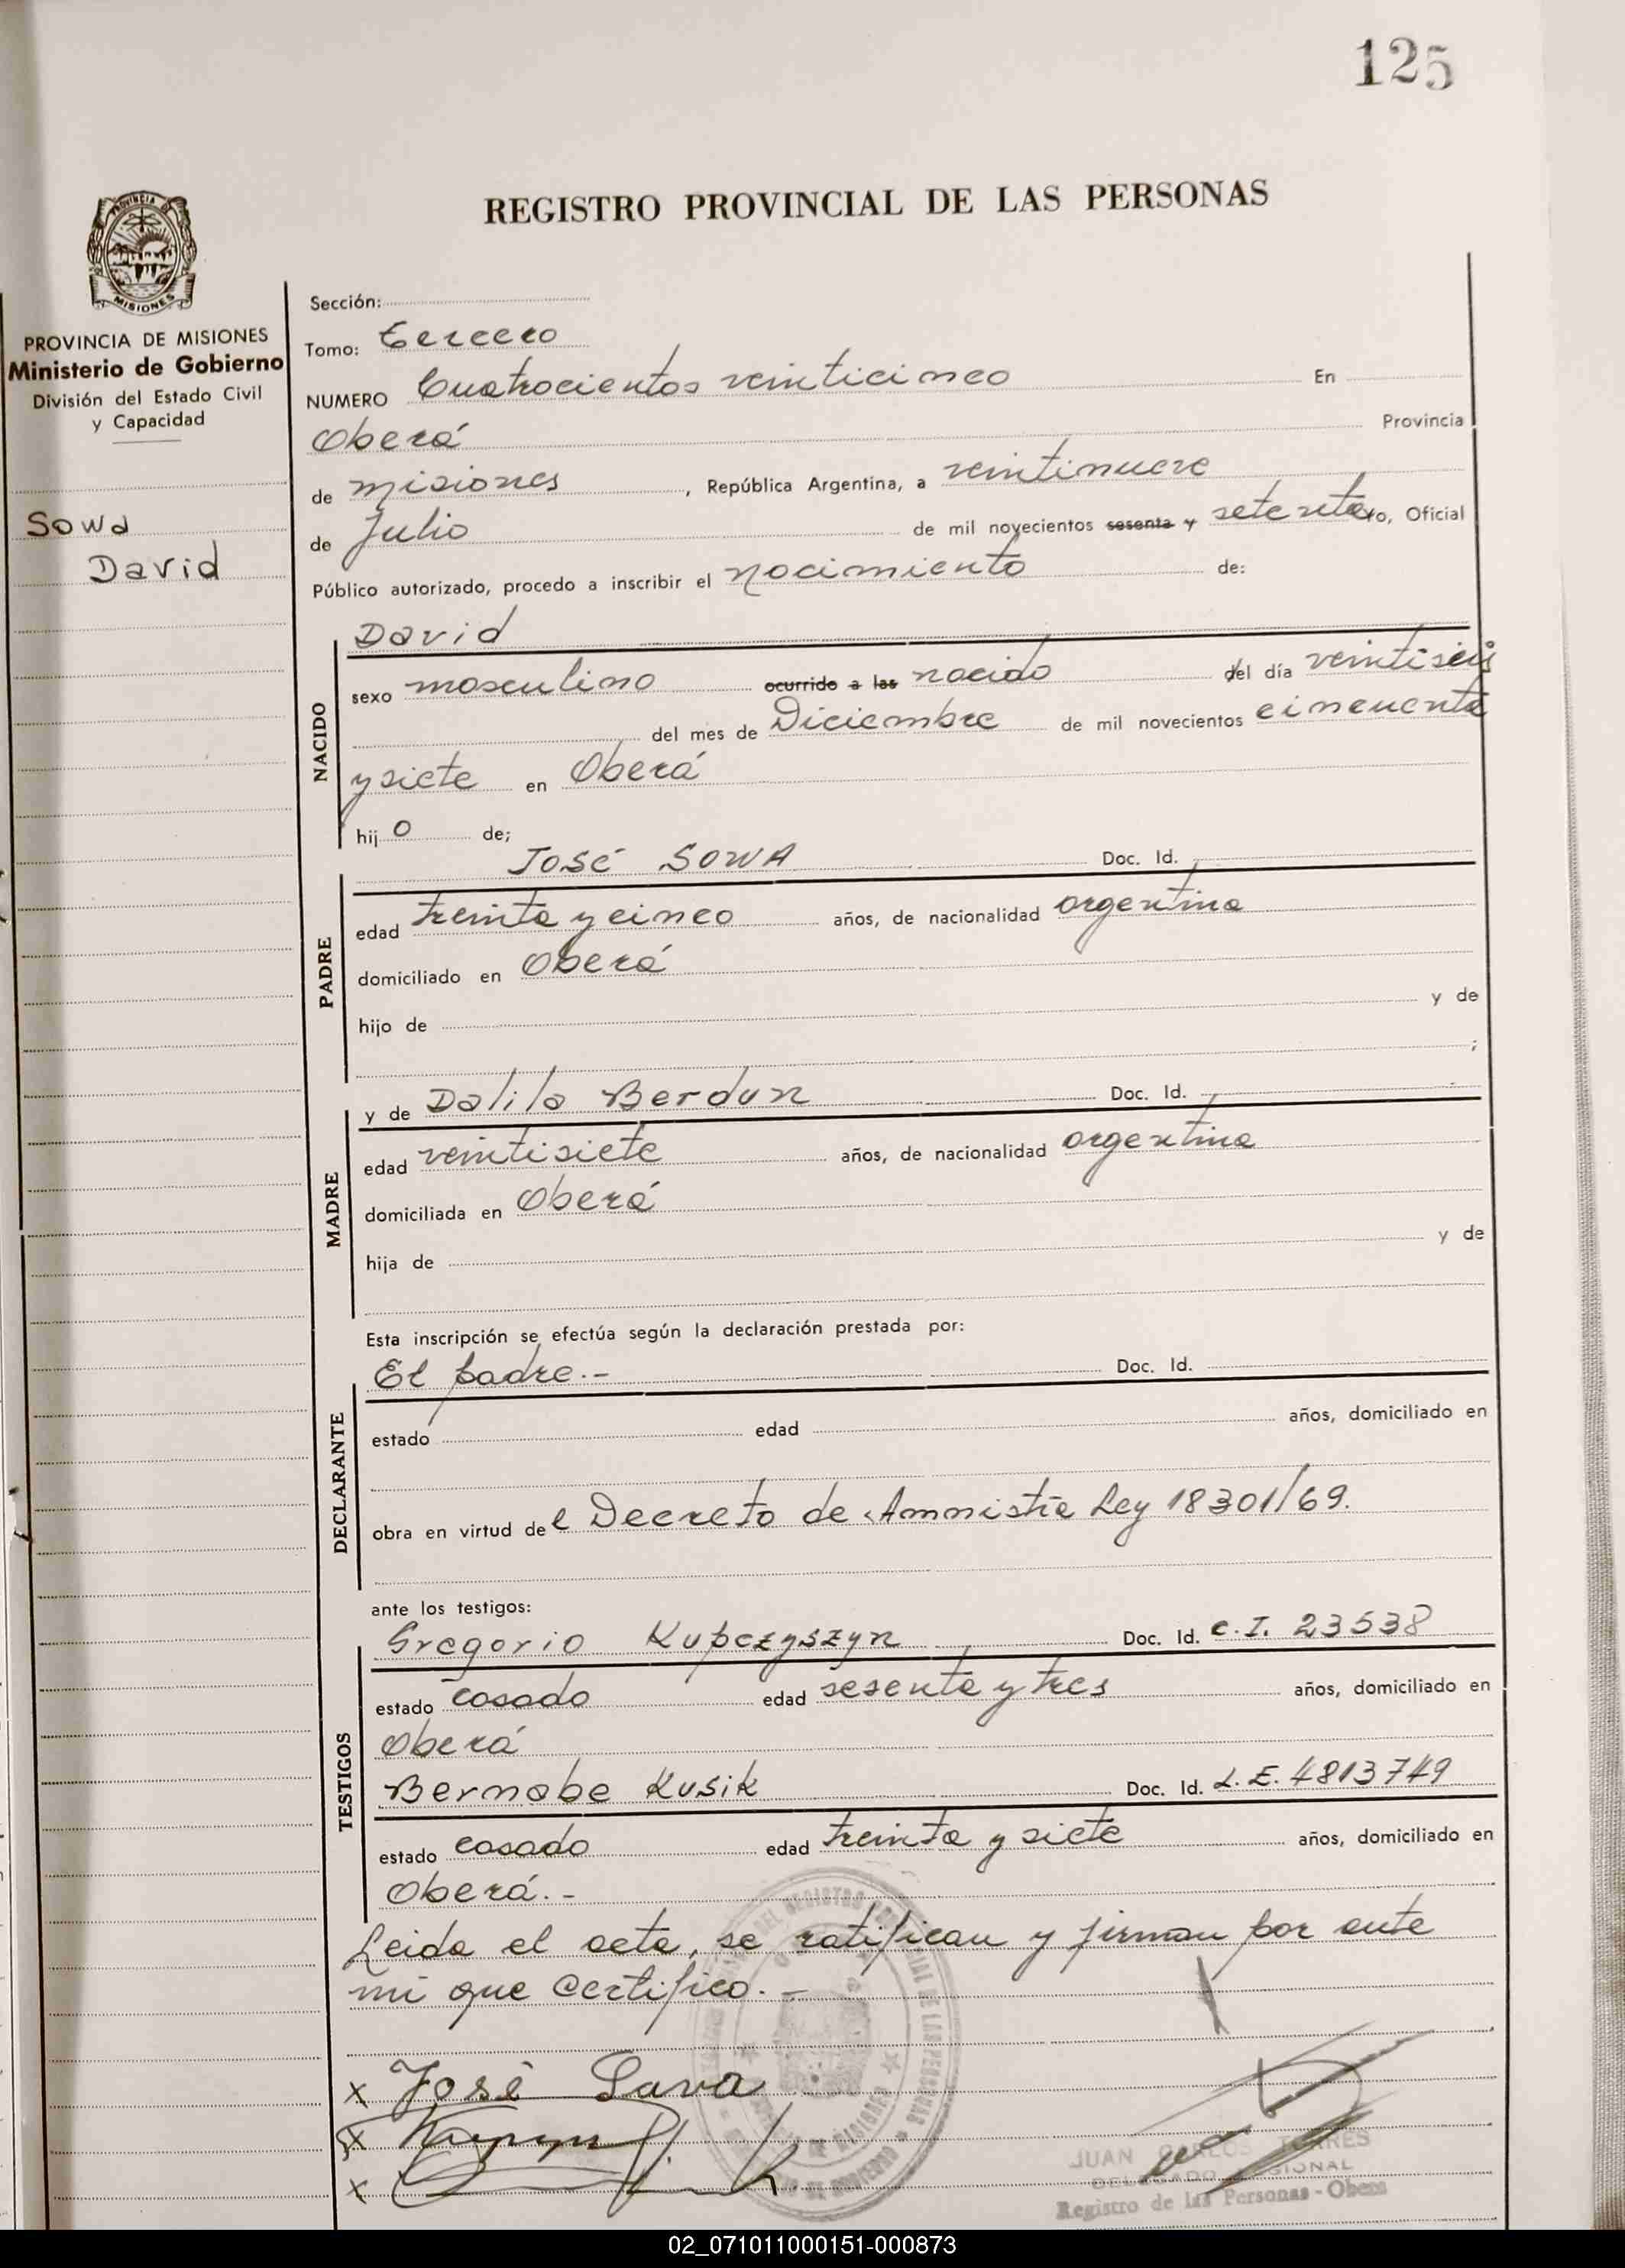 125
REGISTRO PROVINCIAL DE LAS PERSONAS
PROVINCIA DE MISIONES
Ministerio de Gobierno
División del Estado Civil
y Capacidad
Sowa
David
Sección:
Tomo: tercero
NUMERO Cuatrocientos veinticinco En
Oberá Provincia
de misiones, República Argentina, a veintinueve
de Julio de mil novecientos sesenta y setenta yo, Oficial
Público autorizado, procedo a inscribir el nacimiento de:
NACIDO
David
sexo masculino ocurrido a las nacido del día veintiseis
del mes de Diciembre de mil novecientos cincuenta
y siete en Oberá
hijo de;
PADRE
JOSÉ SOWA Doc. Id.
edad treinta y cinco años, de nacionalidad argentina
domiciliado en Oberá
hijo de y de
;
MADRE
y de Dalila Berdun Doc. Id.
edad veintisiete años, de nacionalidad argentina
domiciliada en Oberá
hija de y de
Esta inscripción se efectúa según la declaración prestada por:
DECLARANTE
El padre.- Doc. Id.
estado edad años, domiciliado en
obra en virtud del Decreto de Amnistía Ley 18301/69.
ante los testigos:
TESTIGOS
Gregorio Kupczyszyn Doc. Id. C.I. 23538
estado casado edad sesenta y tres años, domiciliado en
Oberá
Bernabe Kusik Doc. Id. L.E. 4813749
estado casado edad treinta y siete años, domiciliado en
Oberá.-
Leida el acta, se ratifican y firman por ante
mi que certifico.-
x José Sava
x
x
JUAN CARLOS TORRES
DELEGADO REGIONAL
Registro de las Personas - Obera
02_071011000151-000873